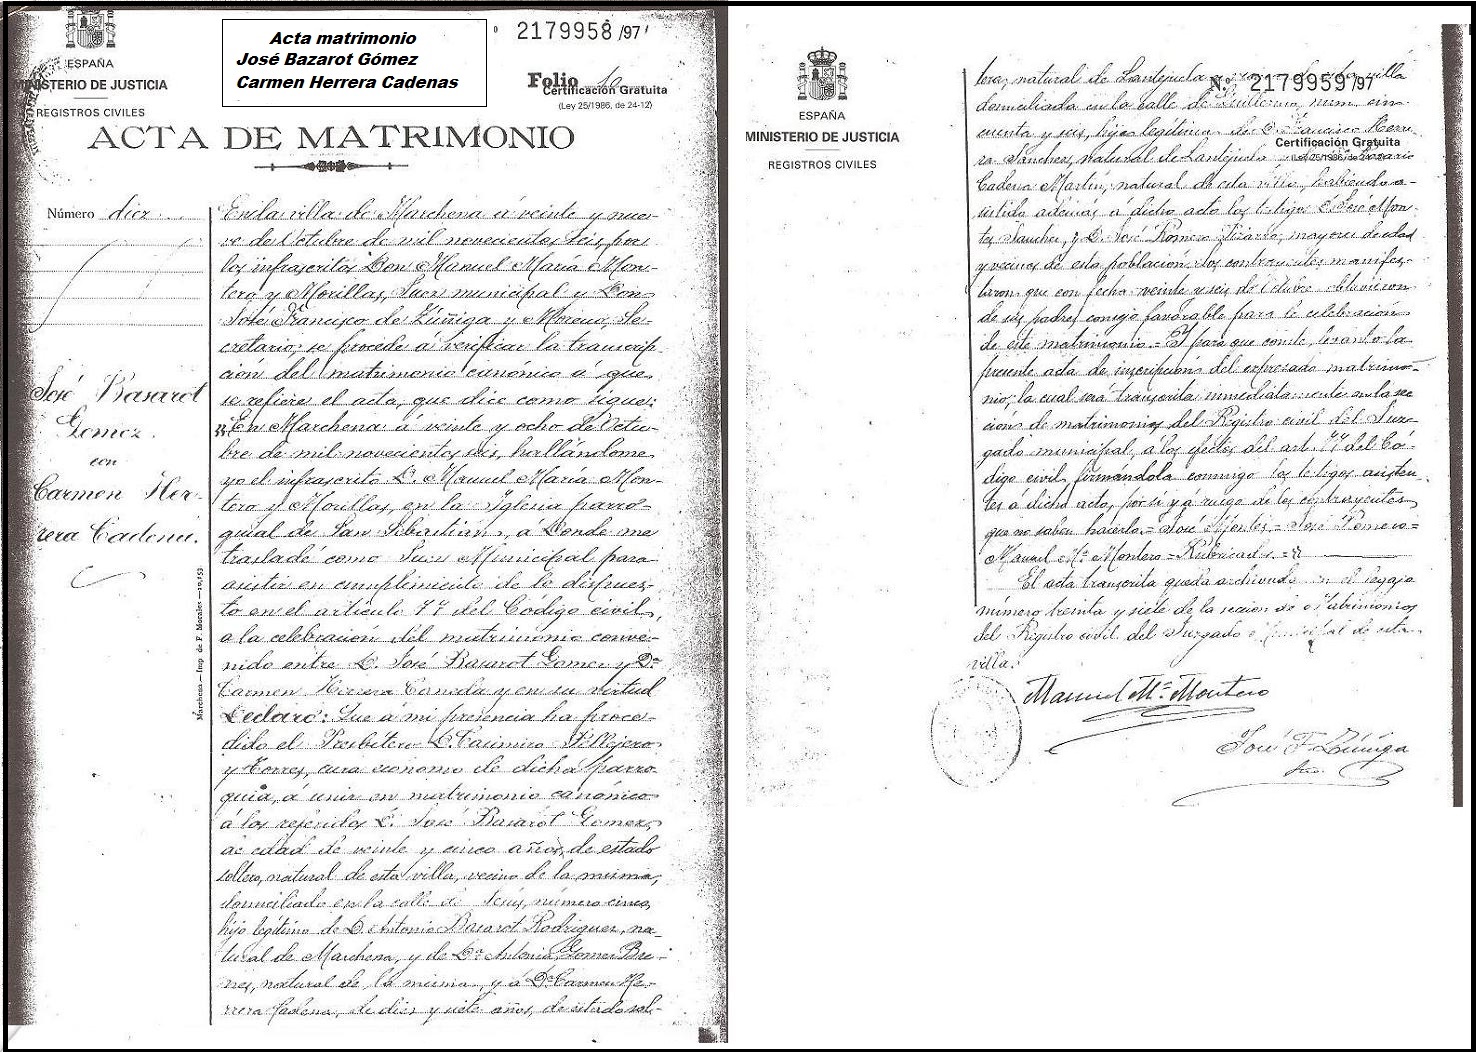 Acta matrimonio
José Bazarot Gómez
Carmen Herrera Cadenas
2179958 /97
ESPAÑA
MINISTERIO DE JUSTICIA
REGISTROS CIVILES
Folio
Certificación Gratuita
(Ley 25/1986, de 24-12)
ACTA DE MATRIMONIO
Número diez
José Basarot
Gomez
con
Carmen Her-
rera Cadena.
Marchena.—Imp. de F. Morales.—10,153
En la villa de Marchena á veinte y nue-
ve de Octubre de mil novecientos seis, por
los infrascritos Don Manuel María Mon-
tero y Morillas, Juez municipal y Don
José Francisco de Zúñiga y Moreno, Se-
cretario, se procede á verificar la transcrip-
cion del matrimonio canonico á que
se refiere el acta, que dice como sigue:
En Marchena á veinte y ocho de Octu-
bre de mil novecientos seis, hallándome
yo el infrascrito D. Manuel María Mon-
tero y Morillas, en la Iglesia parro-
quial de San Sebastian, á donde me
trasladé como Juez Municipal para
asistir en cumplimiento de lo dispues-
to en el artículo 77 del Código civil,
a la celebracion del matrimonio conve-
nido entre D. José Basarot Gomez y Dª
Carmen Herrera y en su virtud
Declaro: Que á mi presencia ha proce-
dido el Presbitero D. Casimiro Pellejero
y Torres, cura economo de dicha parro-
quia, á unir en matrimonio canónico
á los referidos D. José Basarot Gomez,
de edad de veinte y cinco años, de estado
soltero, natural de esta villa, vecino de la misma,
domiciliado en la calle de Jesús, número cinco,
hijo legítimo de D. Antonio Basarot Rodriguez, na-
tural de Marchena, y de Dª Antonia Gomez Bre-
nes, natural de la misma, y á Dª Carmen He-
rrera Cadena, de diez y siete años, de estado sol-
ESPAÑA
MINISTERIO DE JUSTICIA
REGISTROS CIVILES
Nº 2179959 /97
Certificación Gratuita
(Ley 25/1986, de 24-12)
tera, natural de Lantejuela villa
domiciliada en la calle de num. cin-
cuenta y seis, hija legítima de D. Francisco Herre-
ra Sanchez, natural de Lantejuela
Cadena Martin, natural de esta villa, habiendo a-
sistido además á dicho acto los testigos D. José Mon-
tes Sanchez, y D. José Romero Pizarro, mayores de edad
y vecinos de esta poblacion. Los contrayentes manifes-
taron que con fecha veinte y seis de Octubre obtuvieron
de sus padres consejo favorable para la celebración
de este matrimonio.= Y para que conste, levanto la
presente acta de inscripción del expresado matrimo-
nio, la cual será transcrita inmediatamente en la sec-
ción de matrimonios del Registro civil del Juz-
gado municipal, á los efectos del art. 77 del Có-
digo civil, firmándola conmigo los testigos asisten-
tes á dicho acto, por sí y á ruego de los contrayentes
que no saben hacerlo.= José Montes.= José Romero=
Manuel Mª Montero = Rubricados.=
El acta transcrita queda archivada en el legajo
número treinta y siete de la seccion de Matrimonios
del Registro civil del Juzgado Municipal de esta
villa.
Manuel Mª Montero
José F. Zúñiga